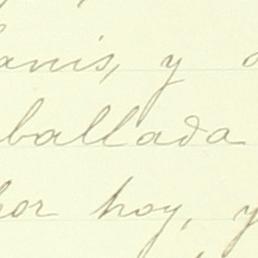 anis, y
ballada
por hoy, y